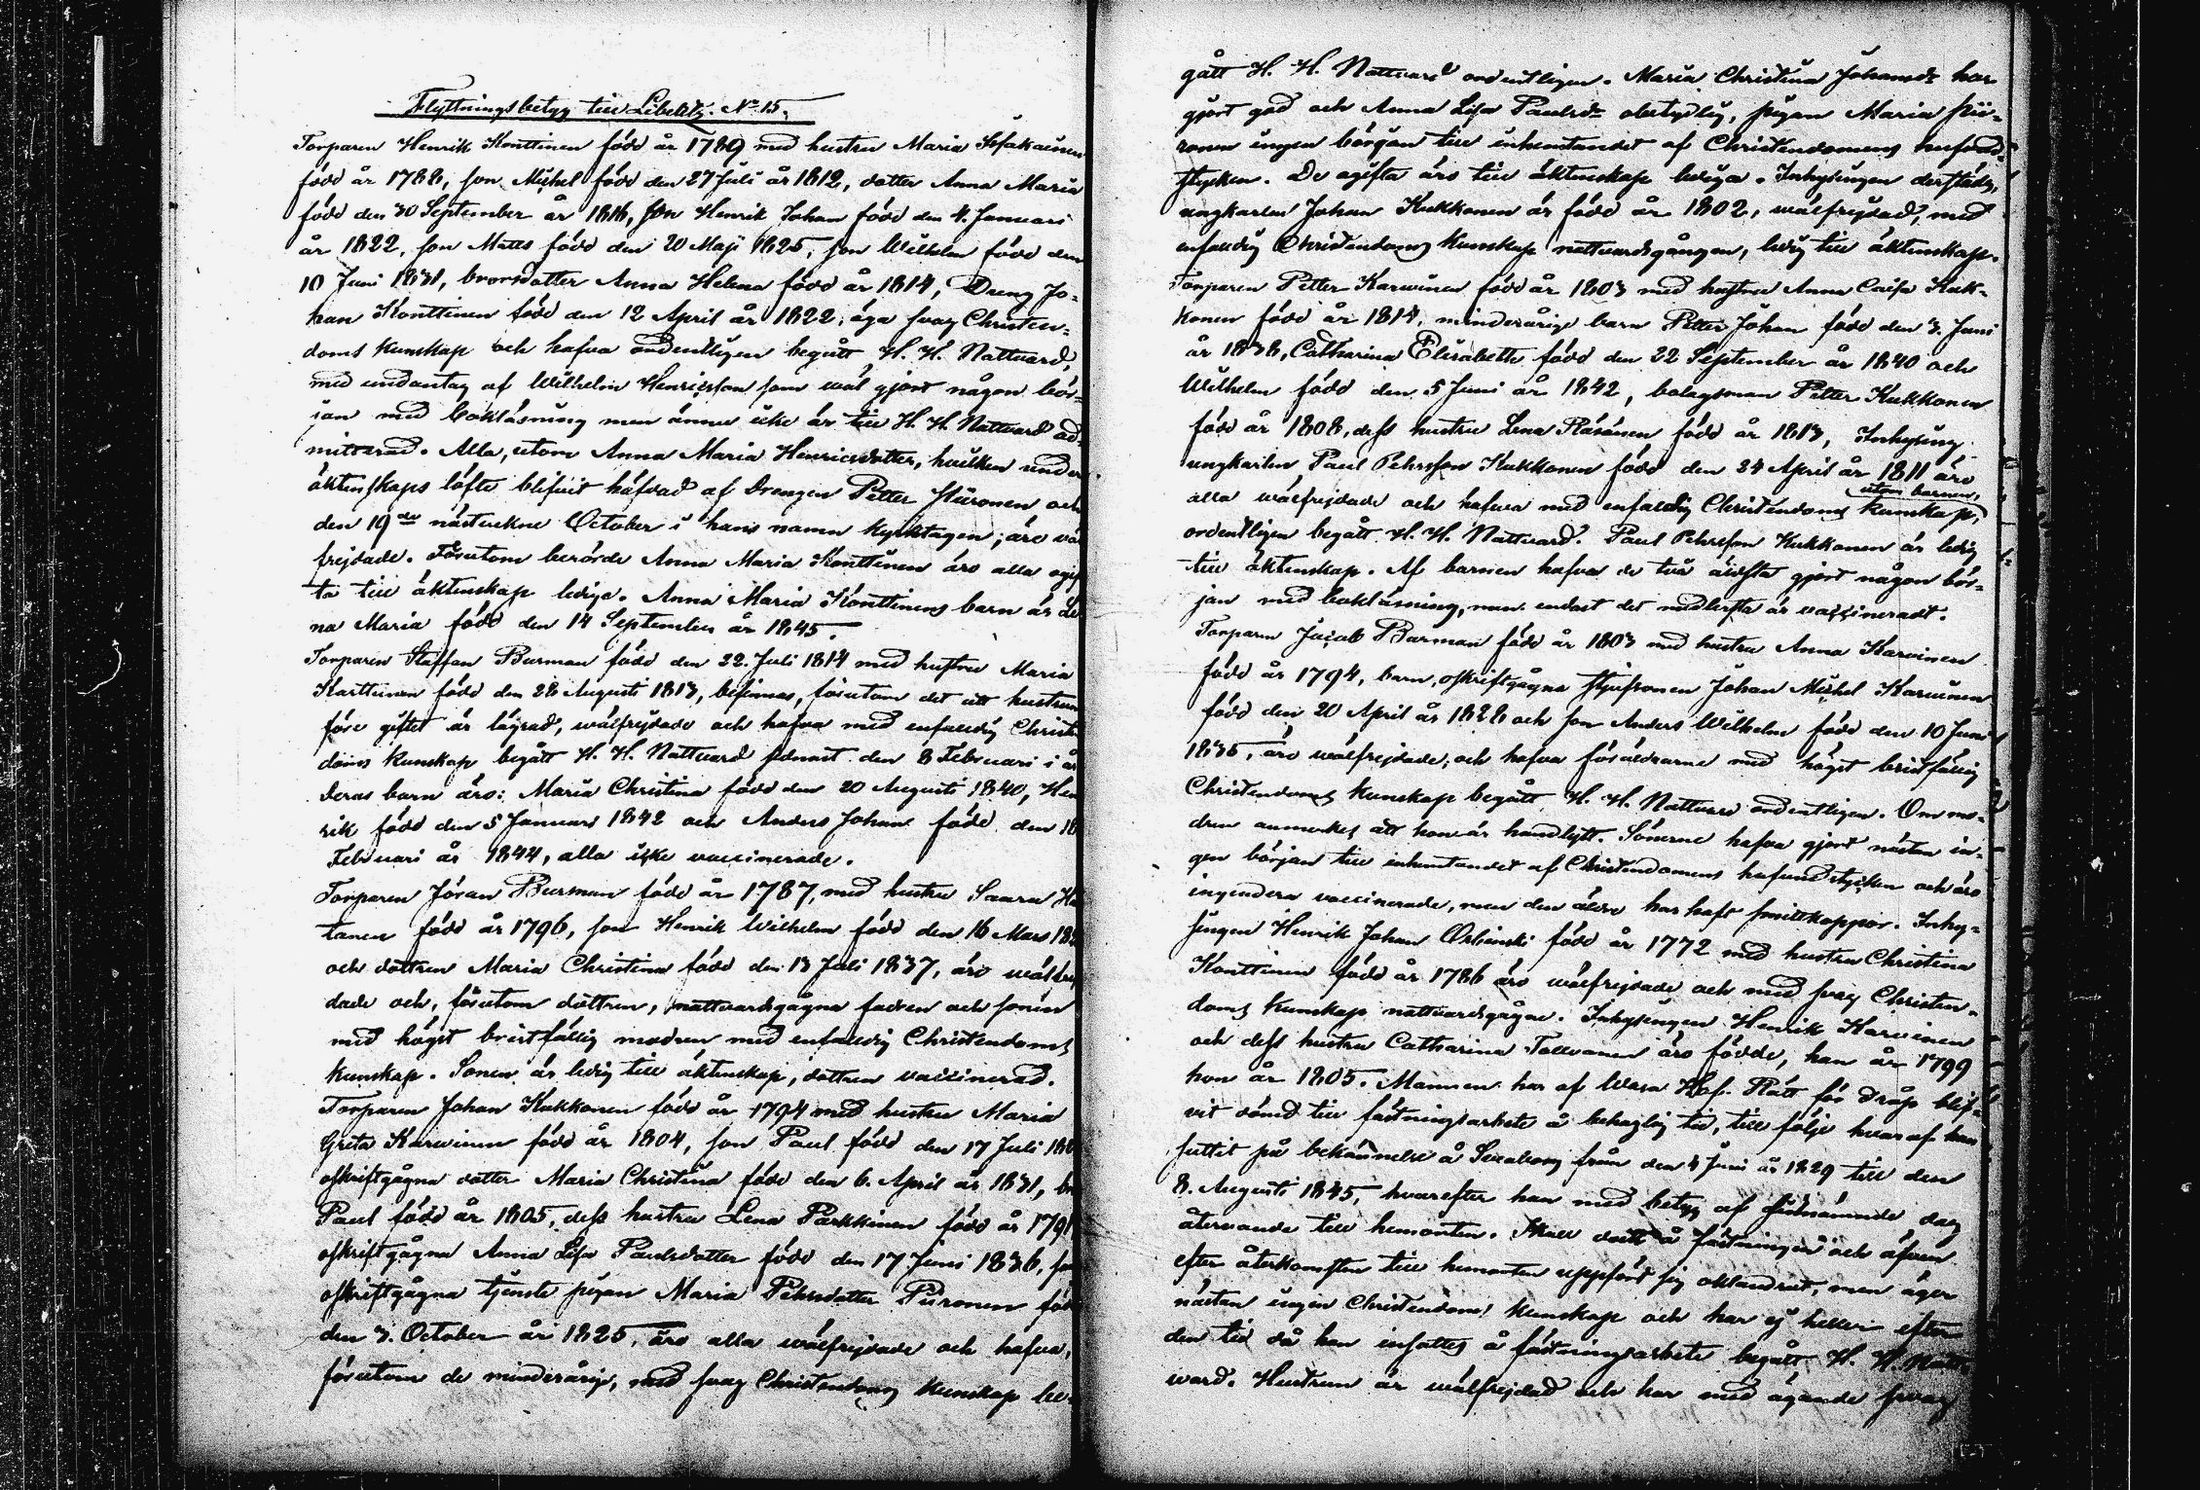 Flyttningsbetyg till Libelitz. No 15.
Torparen Henrik Konttinen född år 1789 med hustru Maria
född år 1788, son Michel född den 27 Juli år 1812, dotter Anna Maria
född den 30 September år 1816, son Henrik Johan född den 4. Januari
år 1822, son Matts född den 20 Maji 1825, son Wilhelm född den
10 Juni 1831, brorsdotter Anna Helena född år 1814, Dreng Jo-
han Konttinen född den 12 April år 1822, äga svag Christen-
doms kunskap och hafva ordentligen begått H. H. Nattvard,
med undantag af Wilhelm Henricsson som wäl gjort någon bör-
jan med bokläsning men ännu icke är till H. H. Nattvard ad-
mitterad. Alla, utom Anna Maria Henricsdotter, hvilken under
äktenskaps löfte blifvit häfdad af Drengen Petter Piironen och
den 19de nästvekne October i hans namn kyrktagen, äro väl-
frejdade. Förutom berörde Anna Maria Konttinen äro alla ogif-
ta till äktenskap ledige. Anna Maria Konttinens barn är
na Maria född den 14 September år 1845.
Torparen Staffan Burman född den 22. Juli 1814 med hustru Maria
Karttunen född den 28 Augusti 1813, befinnas, förutom det att hustrun
före giftet är lägrad, wälfrejdade och hafva med enfaldig Christen
doms kunskap begått H. H. Nattvard sednast den 8 Februari i år
Deras barn äro: Maria Christina född den 20 Augusti 1840, Hen
rik född den 5 Januari 1842 och Anders Johan född den 18
Februari år 1844, alla icke vaccinerade.
Torparen Jöran Burman född år 1787, med hustru Saara
tanen född år 1796, son Henrik Wilhelm född den 16 Mars
och dottren Maria Christina född den 13 Juli 1837, äro wälfrej
dade och, förutom dottren, nattvardsgågna fadren och sonen
med högst bristfällig modren med enfaldig Christendoms
kunskap. Sonen är ledig till äktenskap, dottren vaccinerad.
Torparen Johan Kukkonen född år 1794 med hustru Maria
Greta Karvinen född år 1804, son Paul född den 17 Juli
oskriftgågna dotter Maria Christina född den 6. April år 1831,
Paul född år 1805, dess hustru Lena Parkkinen född år 1791
oskriftgågna Anna Lisa Paulsdotter född den 17 Juni 1836,
oskriftgågna tjenste pigan Maria Pehrsdotter Piironen född
den 3. October år 1825, äro alla wälfrejdade och hafva,
förutom de minderårige, med svag Christendoms kunskap be-
gått H. H. Nattvard ordentligen. Maria Christina Johansdr har
gjort god och Anna Lisa Paulsdr obetydlig, pigan Maria Pii-
ronen ingen börjgan till inhemtandet af Christendomens hufvud-
stycken. De ogifta äro till äktenskap lediga. Inhysingen derstädes,
ungkarlen Johan Kukkonen är född år 1802, wälfrejdad, med
enfaldig Christendoms kunskap nattvardsgången, ledig till äktenskap.
Torparen Petter Karvinen född år 1803 med hustru Anna Caisa Kuk-
konen född år 1814, minderårige barn Petter Johan född den 3. Juni
år 1838, Catharina Elisabeth född den 22 September år 1840 och
Wilhelm född den 5 Juni år 1842, bolagsman Petter Kukkonen
född år 1808, dess hustru Lena Räsänen född år 1813, Inhysing
ungkarlen Paul Pehrsson Kukkonen född den 24 April år 1811 äro
utom barnen,
alla wälfrejdade och hafva med enfaldig Christendoms kunskap,
ordentligen begått H. H. Nattvard. Paul Pehrsson Kukkonen är ledig
till äktenskap. Af barnen hafva de två äldsta gjort någon bör-
jan med bokläsning, men endast det medlersta är vaccineradt.
Torparen Jacob Burman född år 1803 med hustru Anna Karvinen
född år 1794, barn, oskriftgågna styfsonen Johan Michel Karvinen
född den 20 April år 1828 och son Anders Wilhelm född den 10 Juni
1835, äro wälfrejdade, och hafva föräldrarne med högst bristfällig
Christendoms kunskap begått H. H. Nattvard ordentligen. Om mo-
dren anmerkes att hon är handlytt. Sönerne hafva gjort nästan in-
gen början till inhemtandet af Christendomens hufvudstycken och äro
ingendera vaccinerade, men den äldre har haft smittkoppor. Inhy-
singen Henrik Johan Orlianski född år 1772 med hustru Christina
Konttinen född år 1786 äro wälfrejdade och med svag Christen-
doms kunskap nattvardsgågne. Inhysingen Henrik Karvinen
och dess hustru Catharina Tolvanen äro födde, han år 1799
hon år 1805. Mannen har af Wasa Hof-Rätt för dråp blif-
vit dömd till fästningsarbete å behaglig tid, till följe hvaraf han
suttit på bekännelse å Sveaborg från den 4 Juni år 1829 till den
8. Augusti 1845, hvarefter han med betyg af sistnämnde dag
återvände till hemorten. Skall derstä å fästningen och äfven
efter återkomsten till hemorten uppfört sig oklandrat, men äger
nästan ingen Christendoms kunskap och har ej heller efter
den tid då han insattes å fästningsarbete begått H. H. Natt-
ward. Hustrun är wälfrejdad och har med ägande svag